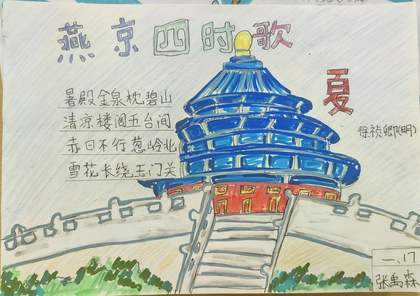 燕京四时歌
夏
徐祯卿(明)
暑殿金泉枕碧山
清凉楼阁五台间
赤日不行葱岭北
雪花长绕玉门关
一、17
张禹